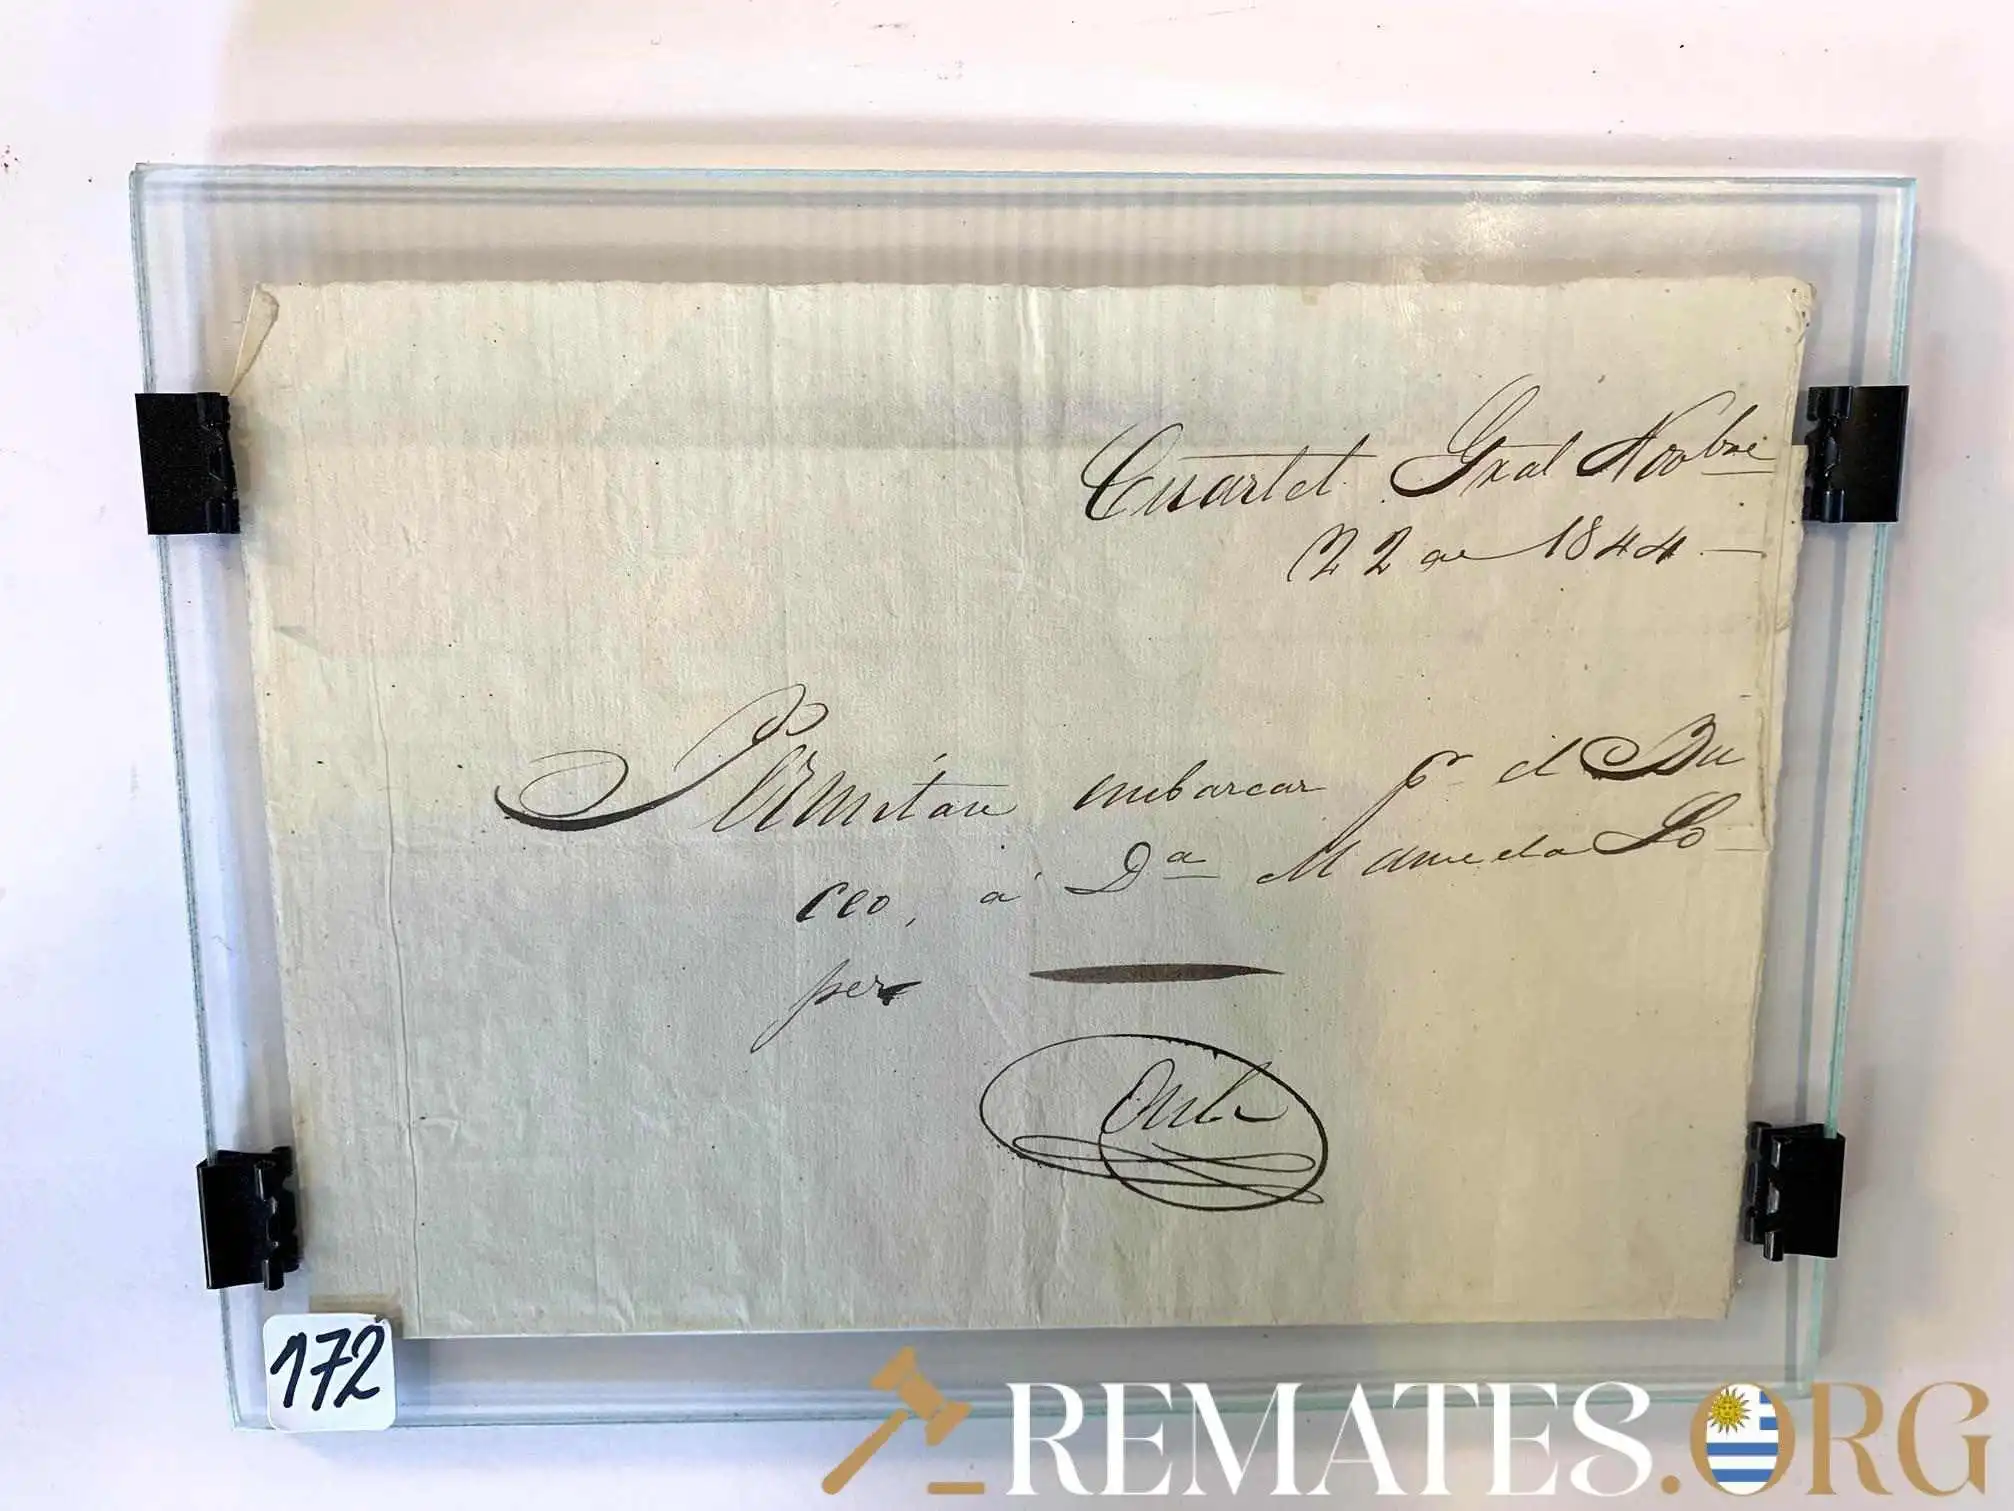 Cuartel Gral Novbre
22 de 1844
Permitan embarcar pr el Bu
ceo, á Da Manuela Lo
pez
Oribe
172
REMATES.ORG